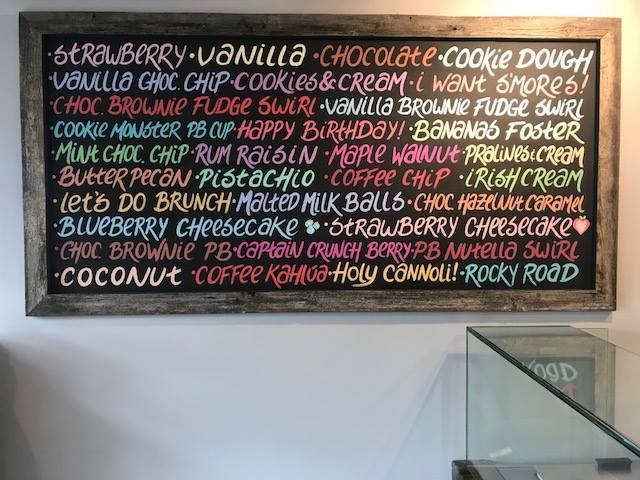 ·STRAWBERRY·VANILLA ·CHOCOLATE·COOKIE DOUGH
·VANILLA CHOC. CHIP·COOKIES&CREAM·i WANT S'MORES!
·CHOC. BROWNIE FUDGE SWIRL·VANILLA BROWNIE FUDGE SWIRL
·COOKIE MONSTER PB CUP·HAPPY BIRTHDAY!·BANANAS FOSTER
·MINT CHOC. CHIP·RUM RAISIN·MAPLE WALNUT·PRALINES&CREAM
·BUTTER PECAN·PISTACHIO·COFFEE CHIP·IRISH CREAM
·LET'S DO BRUNCH·MALTED MILK BALLS·CHOC HAZELNUT CARAMEL
·BLUEBERRY CHEESECAKE ·STRAWBERRY CHEESECAKE
·CHOC. BROWNIE PB·CAPTAIN CRUNCH BERRY·PB NUTELLA SWIRL
·COCONUT ·COFFEE KAHLUA·HOLY CANNOLI!·ROCKY ROAD